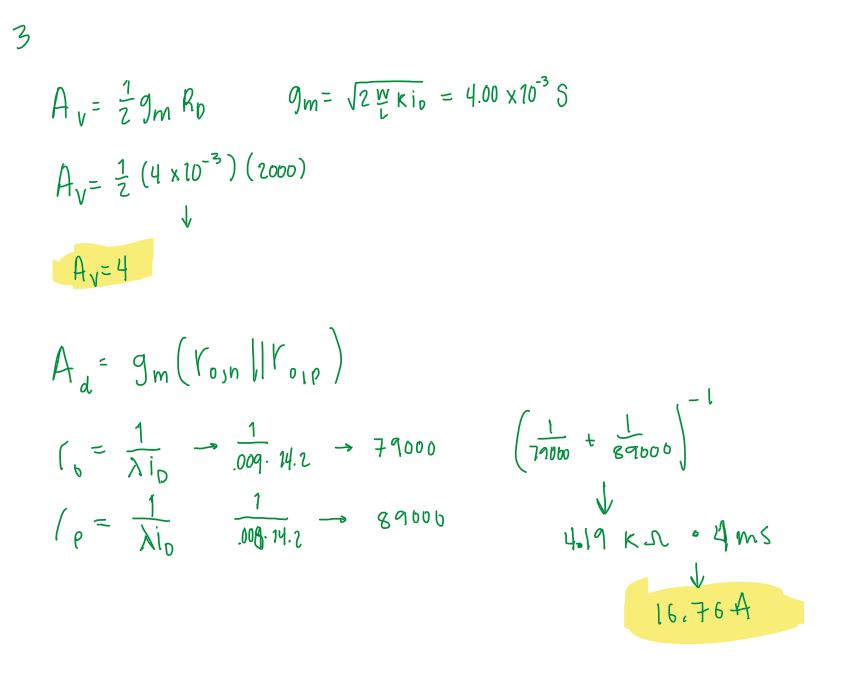 3
A_v = 1/2 g_m R_D    g_m = √(2 W/L K i_D) = 4.00 x 10^-3 S
A_v = 1/2 (4 x 10^-3) (2000)
↓
A_v = 4
A_d = g_m (r_o,n || r_o,p)
r_o = 1/(λ i_D) → 1/(.009 · 14.2) → 79000    (1/79000 + 1/89000)^-1
r_p = 1/(λ i_D)    1/(.008 · 14.2) → 89000
↓
4.19 KΩ · 4 ms
↓
16.76 A